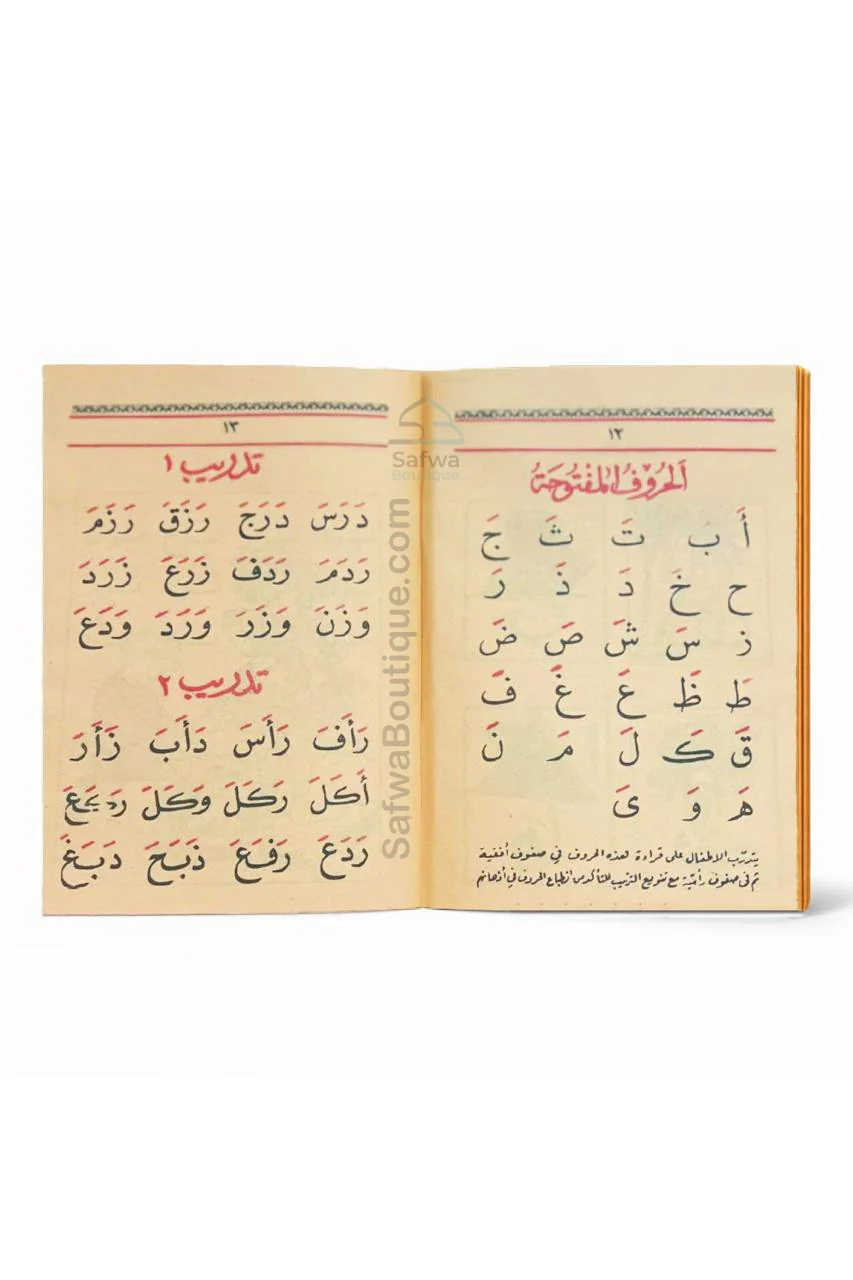 ١٢
الحُرُوْفُ الْمَفْتُوحَةُ
أَ بَ تَ ثَ جَ
حَ خَ دَ ذَ رَ
زَ سَ شَ صَ ضَ
طَ ظَ عَ غَ فَ
قَ كَ لَ مَ نَ
هَ وَ ىَ
يتدرّب الاطفال على قراءة هذه الحروف في صفوف أفقية
ثم في صفوف رأسيّة مع تنويع الترتيب للتأكد من انطباع الحروف في أذهانهم
١٣
تدريب ١
دَرَسَ دَرَجَ رَزَقَ رَزَمَ
رَدَمَ رَدَفَ زَرَعَ زَرَدَ
وَزَنَ وَزَرَ وَرَدَ وَدَعَ
تدريب ٢
رَأَفَ رَأَسَ دَأَبَ زَأَرَ
أَكَلَ رَكَلَ وَكَلَ
رَدَعَ رَفَعَ ذَبَحَ دَبَغَ
Safwa
Boutique
SafwaBoutique.com